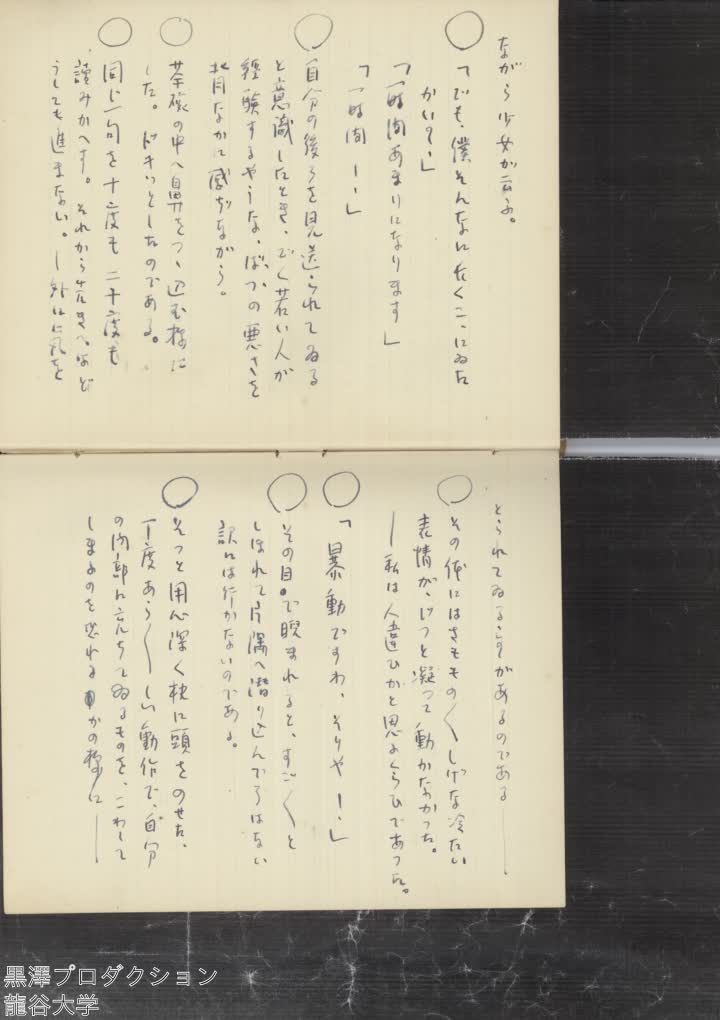 ながら少女が云ふ。
「でも、僕そんなに長くこゝにゐた
かい？」
「一時間あまりになります」
「一時間ー！」
自分の後ろを見送られてゐる
と意識したとき、ごく若い人が
経験するやうな、ばつの悪さを
背なかに感ぢながら。
茶碗の中へ鼻をつゝ込む様に
した。ドキッとしたのである。
同じ一句を十度も二十度も
読みかへす。それから先きへはど
うしても進まない。ー外はに風を
とられてゐる事があるのである——
その体にはさももの〱しげな冷たい
表情が、じつと凝つて動かなかつた。
ー私は人違ひかと思ふくらひであつた。
「暴動ですわ、そりやー！」
その目で睨まれると、すご〱と
しほれて片隅へ潜り込んでろはない
訳には行かないのである。
そつと用心深く枕に頭をのせた、
丁度あら〱しい動作で、自分
の内部に立ちてゐるものを、こわして
しまふのを恐れるかの様に——
黒澤プロダクション
龍谷大学